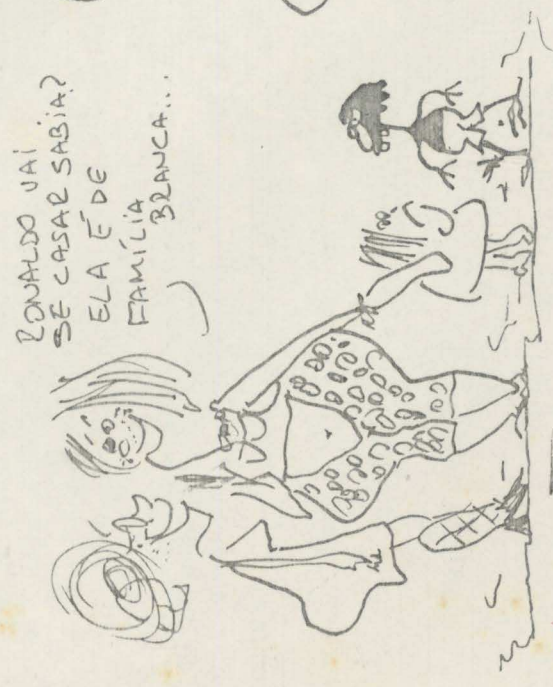 RONALDO VAI
SE CASAR SABIA?
ELA É DE
FAMÍLIA
BRANCA...